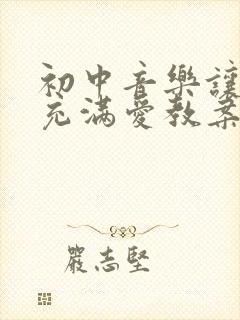 初中音樂讓
充滿愛教案
嚴志堅